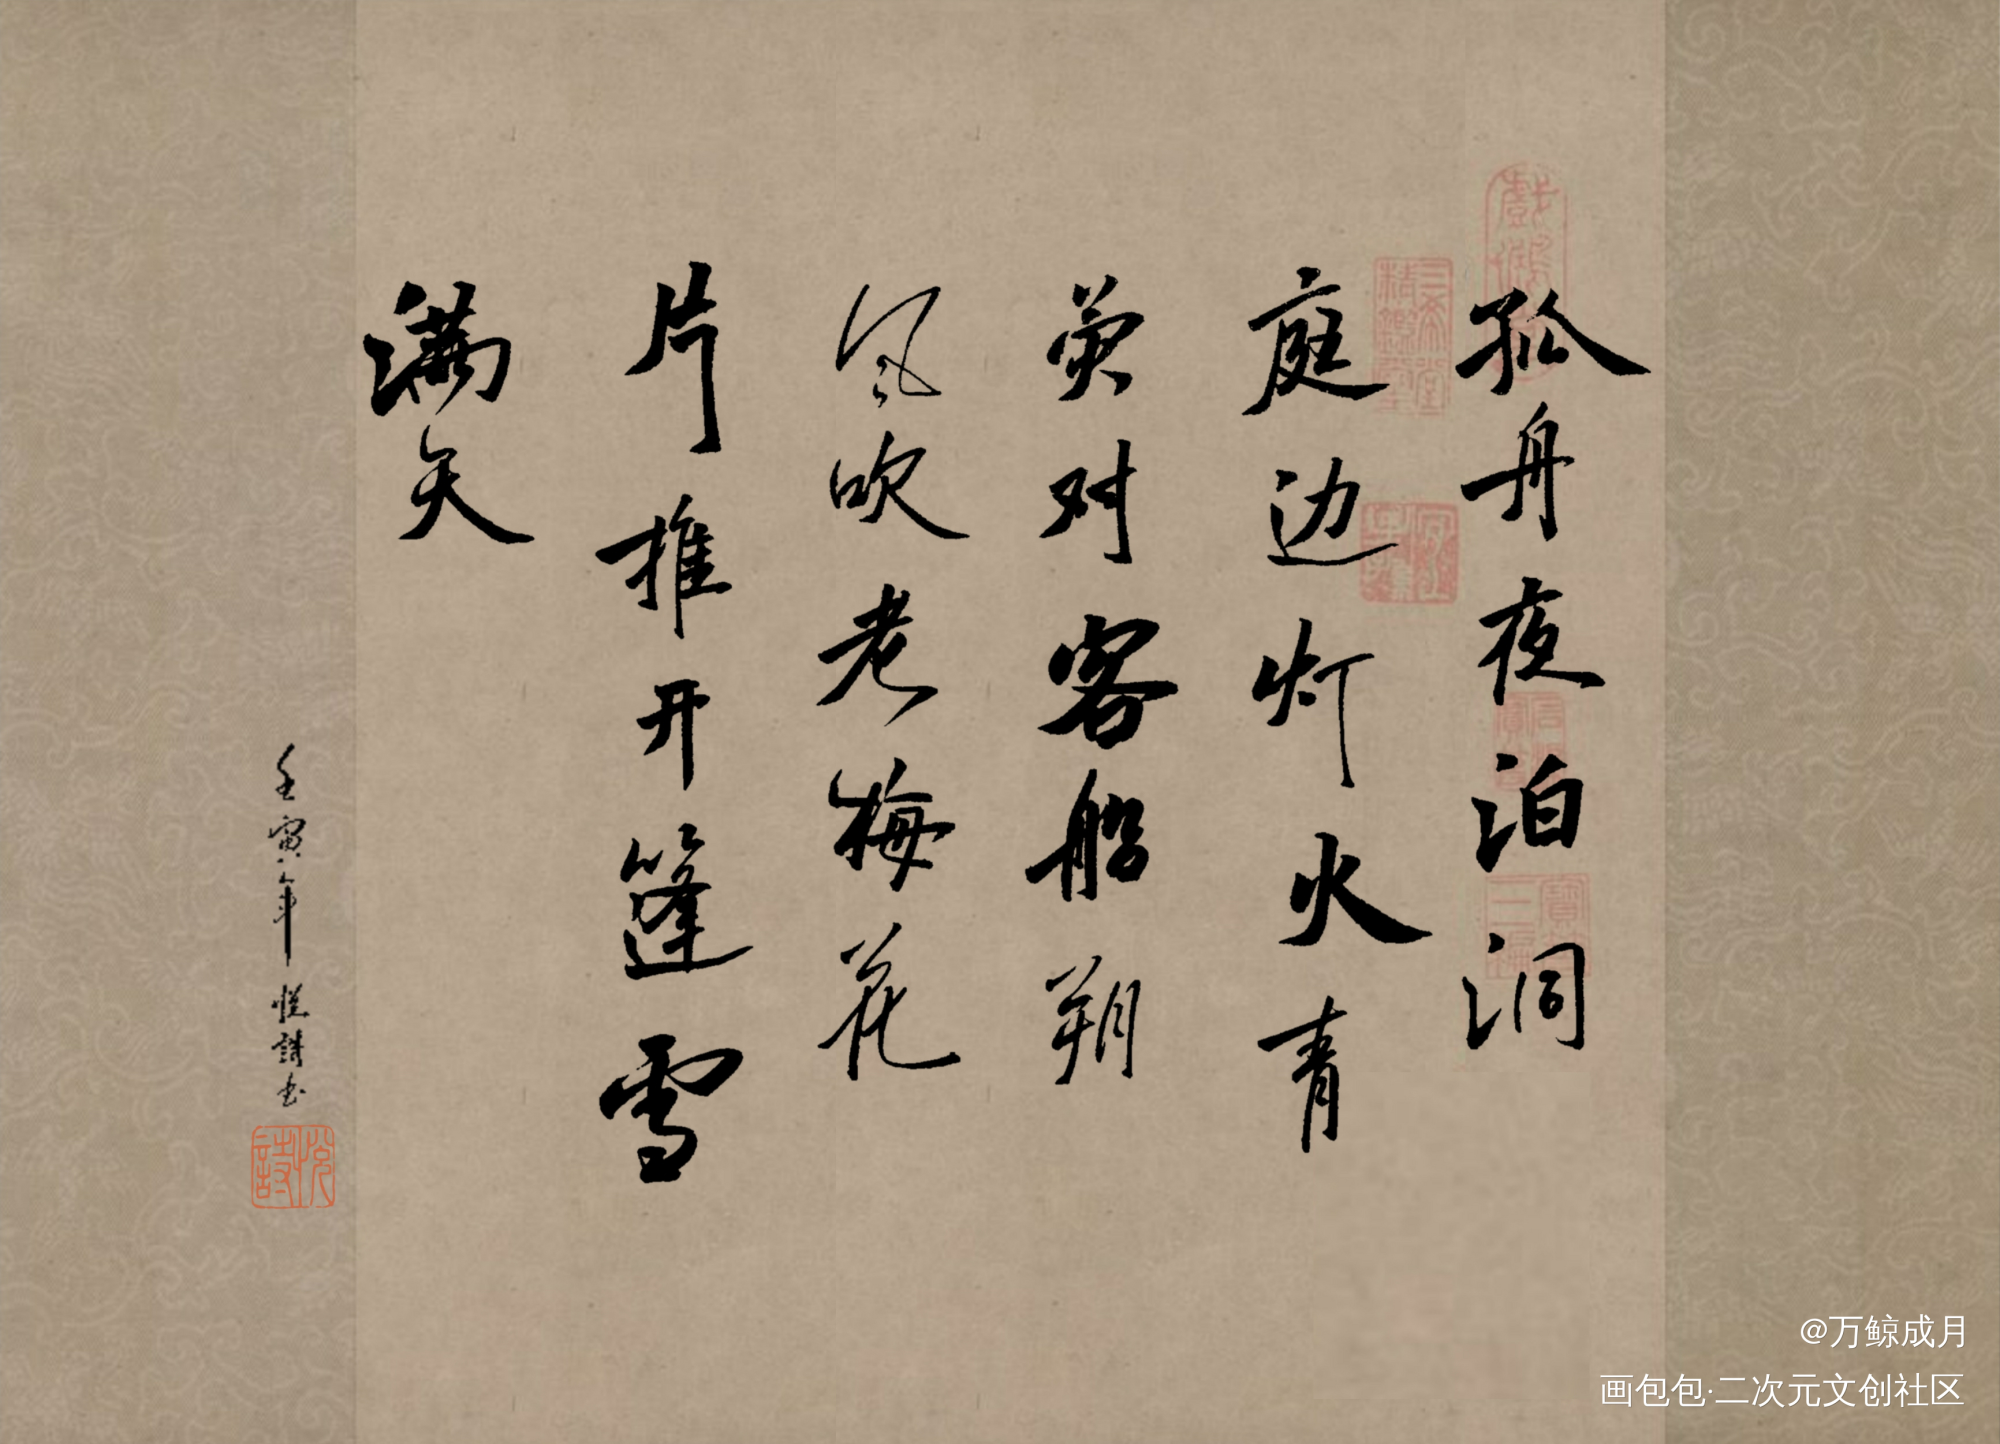 孤舟夜泊洞
庭边灯火青
荧对客船朔
风吹老梅花
片推开篷雪
满天
壬寅年 悦诗书
悦诗
@万鲸成月
画包包·二次元文创社区